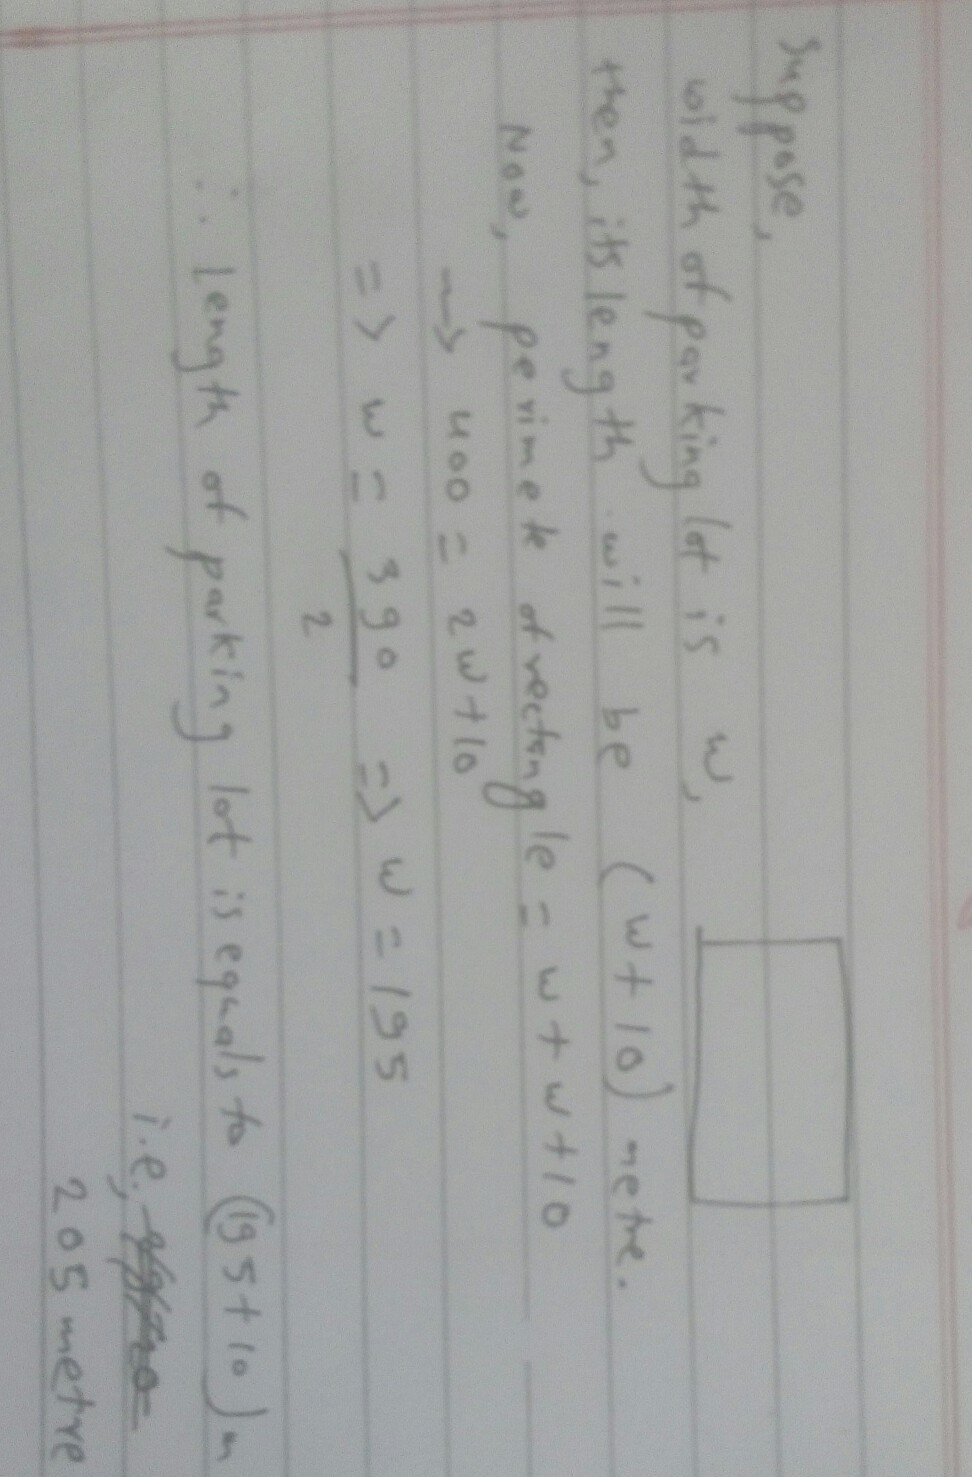 Suppose,
width of parking lot is w,
then, its length will be (w+10) metre.
Now, perimete of rectangle = w + w +10
→ 400 = 2w+10
=> w = 390/2 => w = 195
∴ length of parking lot is equals to (195+10) m
i.e,
205 metre